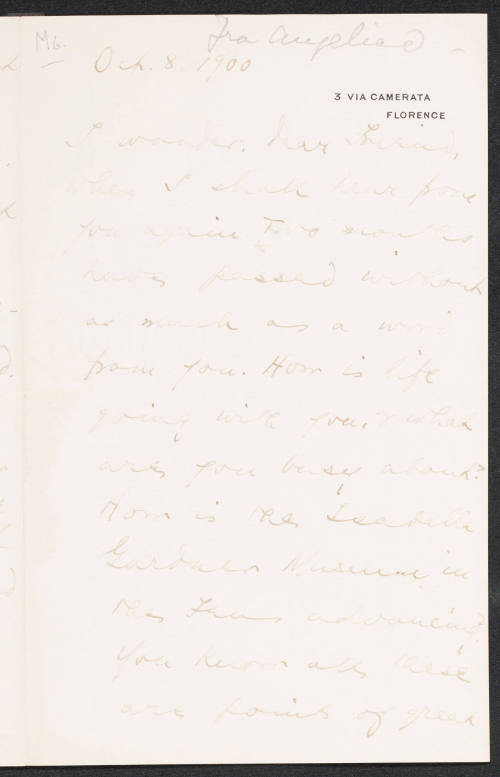 MG.
Fra Angelico
Oct. 8. 1900
3 VIA CAMERATA
FLORENCE
I wonder, dear Friend,
when I shall hear from
you again. Two months
have passed without
as much as a word
from you. How is life
going with you, & what
are you busy about?
How is the Isabella
Gardner Museum in
the Fens advancing?
You know all these
are points of great